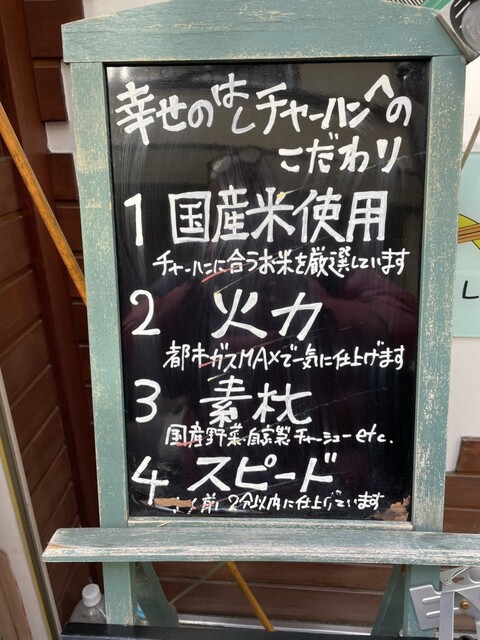 幸せのはしチャーハンへの
こだわり
1 国産米使用
チャーハンに合うお米を厳選しています
2 火力
都市ガスMAXで一気に仕上げます
3 素材
国産野菜・自家製チャーシューetc.
4 スピード
前 2分以内に仕上げています
L